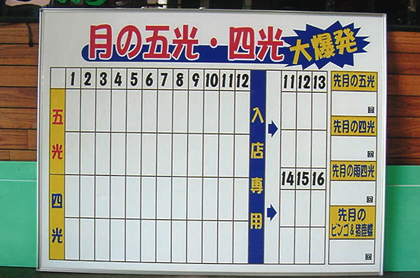 月の五光・四光 大爆発
1 2 3 4 5 6 7 8 9 10 11 12
五光
四光
入店専用
11 12 13
14 15 16
先月の五光
回
先月の四光
回
先月の雨四光
回
先月の
ビンゴ&
回